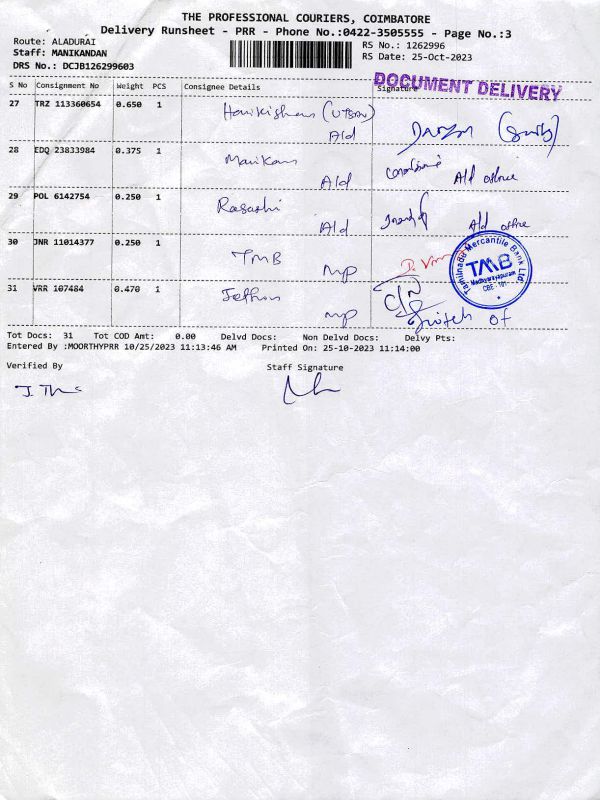 THE PROFESSIONAL COURIERS, COIMBATORE
Delivery Runsheet - PRR - Phone No.:0422-3505555 - Page No.:3
Route: ALADURAI
Staff: MANIKANDAN
DRS No.: DCJB126299603
RS No.: 1262996
RS Date: 25-Oct-2023
S No Consignment No Weight PCS Consignee Details Signature
DOCUMENT DELIVERY
27 TRZ 113360654 0.650 1
Ald
28 EDQ 23833984 0.375 1
Ald Ald
29 POL 6142754 0.250 1
Ald Ald office
30 JNR 11014377 0.250 1 TMB
MP
Tamilnad Mercantile Bank Ltd.
TMB
CBE - 101
31 VRR 107484 0.470 1
MP Switch of
Tot Docs: 31 Tot COD Amt: 0.00 Delvd Docs: Non Delvd Docs: Delvy Pts:
Entered By :MOORTHYPRR 10/25/2023 11:13:46 AM Printed On: 25-10-2023 11:14:00
Verified By Staff Signature